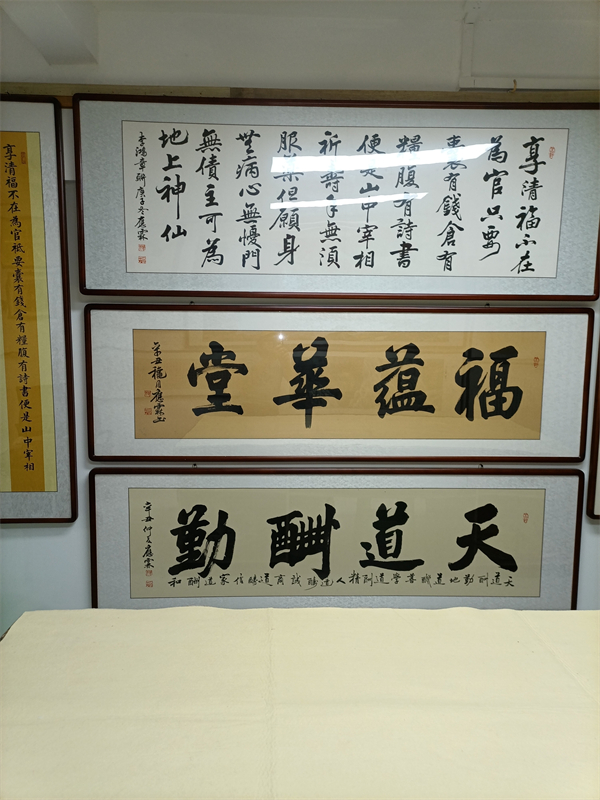 享清福不在
為官只要
囊有錢倉有
糧腹有詩書
便是山中宰相
祈壽年無須
服藥但願身
無病心無憂門
無債主可為
地上神仙
李鴻章聯庚子冬應霖
福蘊華堂
辛丑穐月應霖
天道酬勤
天道酬勤地道酬善學道酬精人道酬誠商道酬信家道酬和
辛丑仲夏應霖
享清福不在為官祗要囊有錢倉有糧腹有詩書便是山中宰相